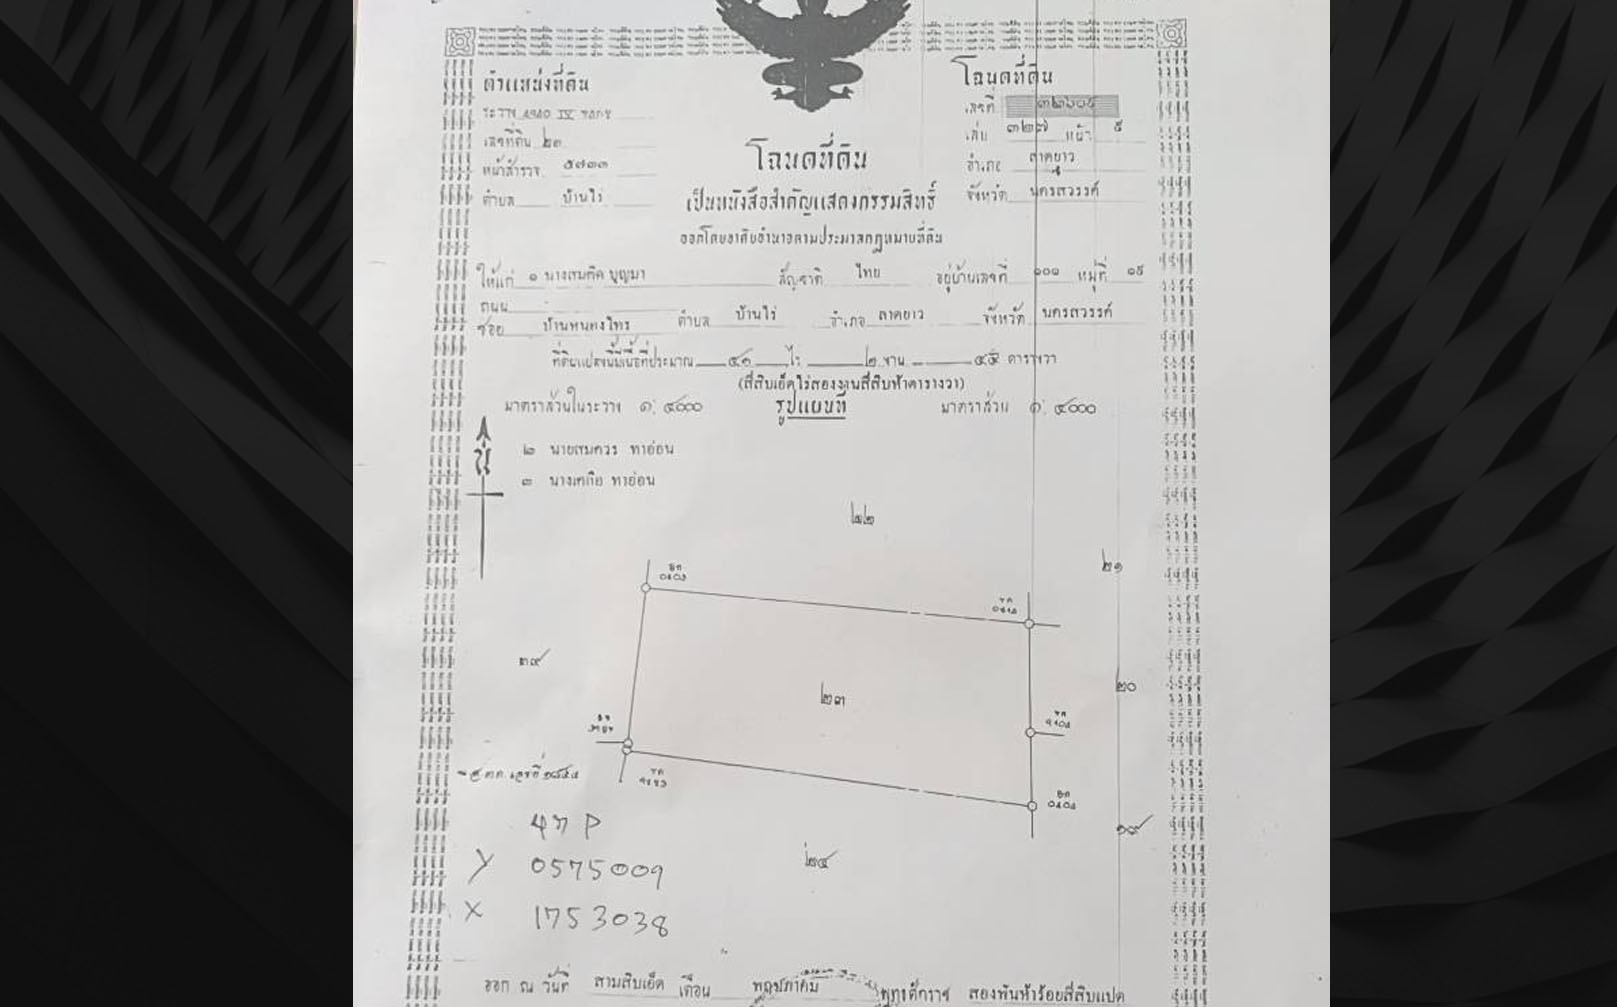 ตำแหน่งที่ดิน
ระวาง IV
เลขที่ดิน ๒๓
หน้าสำรวจ ๕๗๓๓
ตำบล บ้านไร่
โฉนดที่ดิน
เลขที่
เล่ม ๓๒๗ หน้า ๕
อำเภอ ลาดยาว
จังหวัด นครสวรรค์
โฉนดที่ดิน
เป็นหนังสือสำคัญแสดงกรรมสิทธิ์
ออกโดยอาศัยอำนาจตามประมวลกฎหมายที่ดิน
ให้แก่ ๑ นางสมคิด บุญมา สัญชาติ ไทย อยู่บ้านเลขที่ ๑๐๑ หมู่ที่ ๑๕
ถนน
ซอย บ้านหนองไทร ตำบล บ้านไร่ อำเภอ ลาดยาว จังหวัด นครสวรรค์
ที่ดินแปลงนี้มีเนื้อที่ประมาณ ๔๑ ไร่ ๒ งาน ๔๕ ตารางวา
(สี่สิบเอ็ดไร่สองงานสี่สิบห้าตารางวา)
มาตราส่วนในระวาง ๑: ๔๐๐๐ รูปแผนที่ มาตราส่วน ๑: ๔๐๐๐
น
๒ นายสมควร ทาอ่อน
๓ ทาอ่อน
๒๒
๒๑
๒๙
๒๓
๒๐
๑๙
๒๔
P
Y 0575009
X 1753038
ออก ณ วันที่ สามสิบเอ็ด เดือน พฤษภาคม พุทธศักราช สองพันห้าร้อยสี่สิบแปด